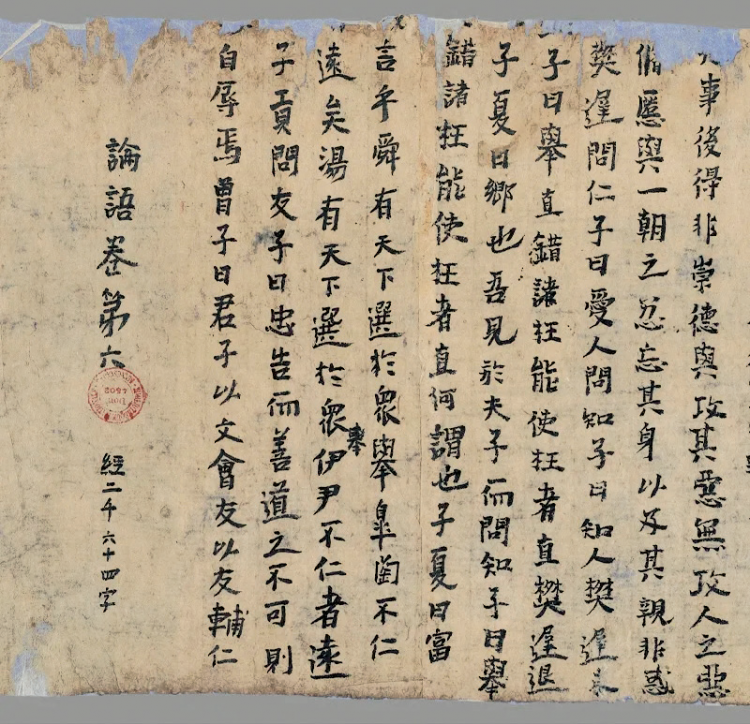 事後得非崇德與攻其惡無攻人之惡
脩慝與一朝之忿忘其身以及其親非惑
樊遲問仁子曰愛人問知子曰知人樊遲未
子曰舉直錯諸枉能使枉者直樊遲退
子夏曰鄉也吾見於夫子而問知子曰舉
錯諸枉能使枉者直何謂也子夏曰富
言乎舜有天下選於衆舉皐陶不仁
遠矣湯有天下選於衆舉伊尹不仁者遠
子貢問友子曰忠告而善道之不可則
自辱焉曾子曰君子以文會友以友輔仁
論語卷第六
經二千六十四字